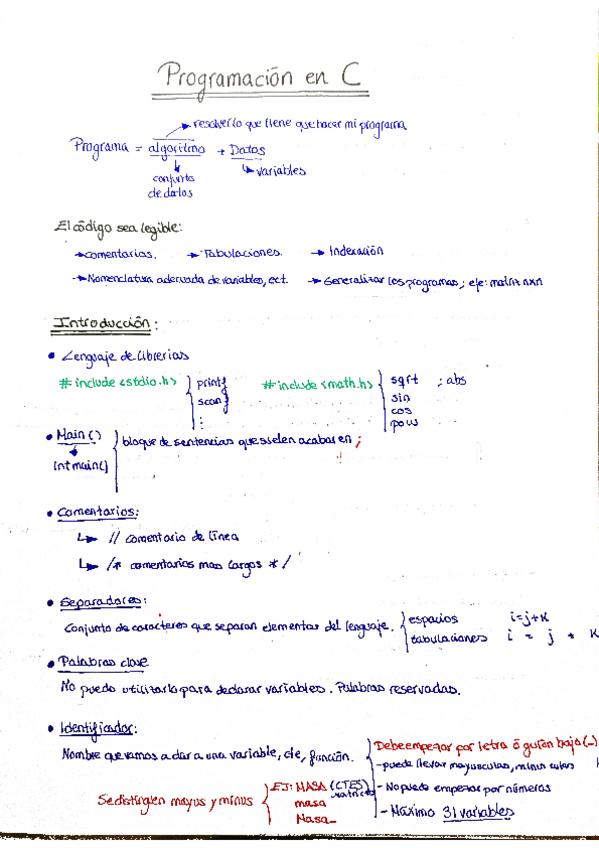 Programación en C
resolver lo que tiene que hacer mi programa
Programa = algoritmo + Datos
conjunto de datos
variables
El código sea legible:
→ comentarios. → Tabulaciones. → Indexación
→ Nomenclatura adecuada de variables, ect. → Generalizar los programas; eje: matriz nxn
Introducción:
• Lenguaje de librerias
#include <stdio.h> printf #include <math.h> sqrt ; abs
scanf sin
⋮ cos
pow
• Main() bloque de sentencias que suelen acabar en ;
int main()
• Comentarios:
// comentario de línea
/* comentarios mas largos */
• Separadores:
Conjunto de caracteres que separan elementos del lenguaje. espacios i=j+k
tabulaciones i = j + k
• Palabras clave
No puedo utilizarla para declarar variables. Palabras reservadas.
• Identificador:
Nombre que vamos a dar a una variable, cte, función.
Debe empezar por letra ó guión bajo (_)
- puede llevar mayusculas, minusculas
- No puede empezar por números
- Máximo 31 variables
Se distinguen mayus y minus EJ: MASA (CTES)
masa
Masa_